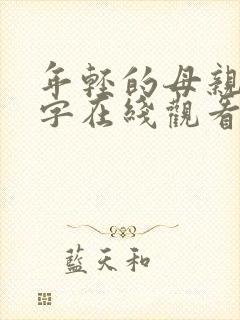 年轻的母親
字在綫觀看
藍天和